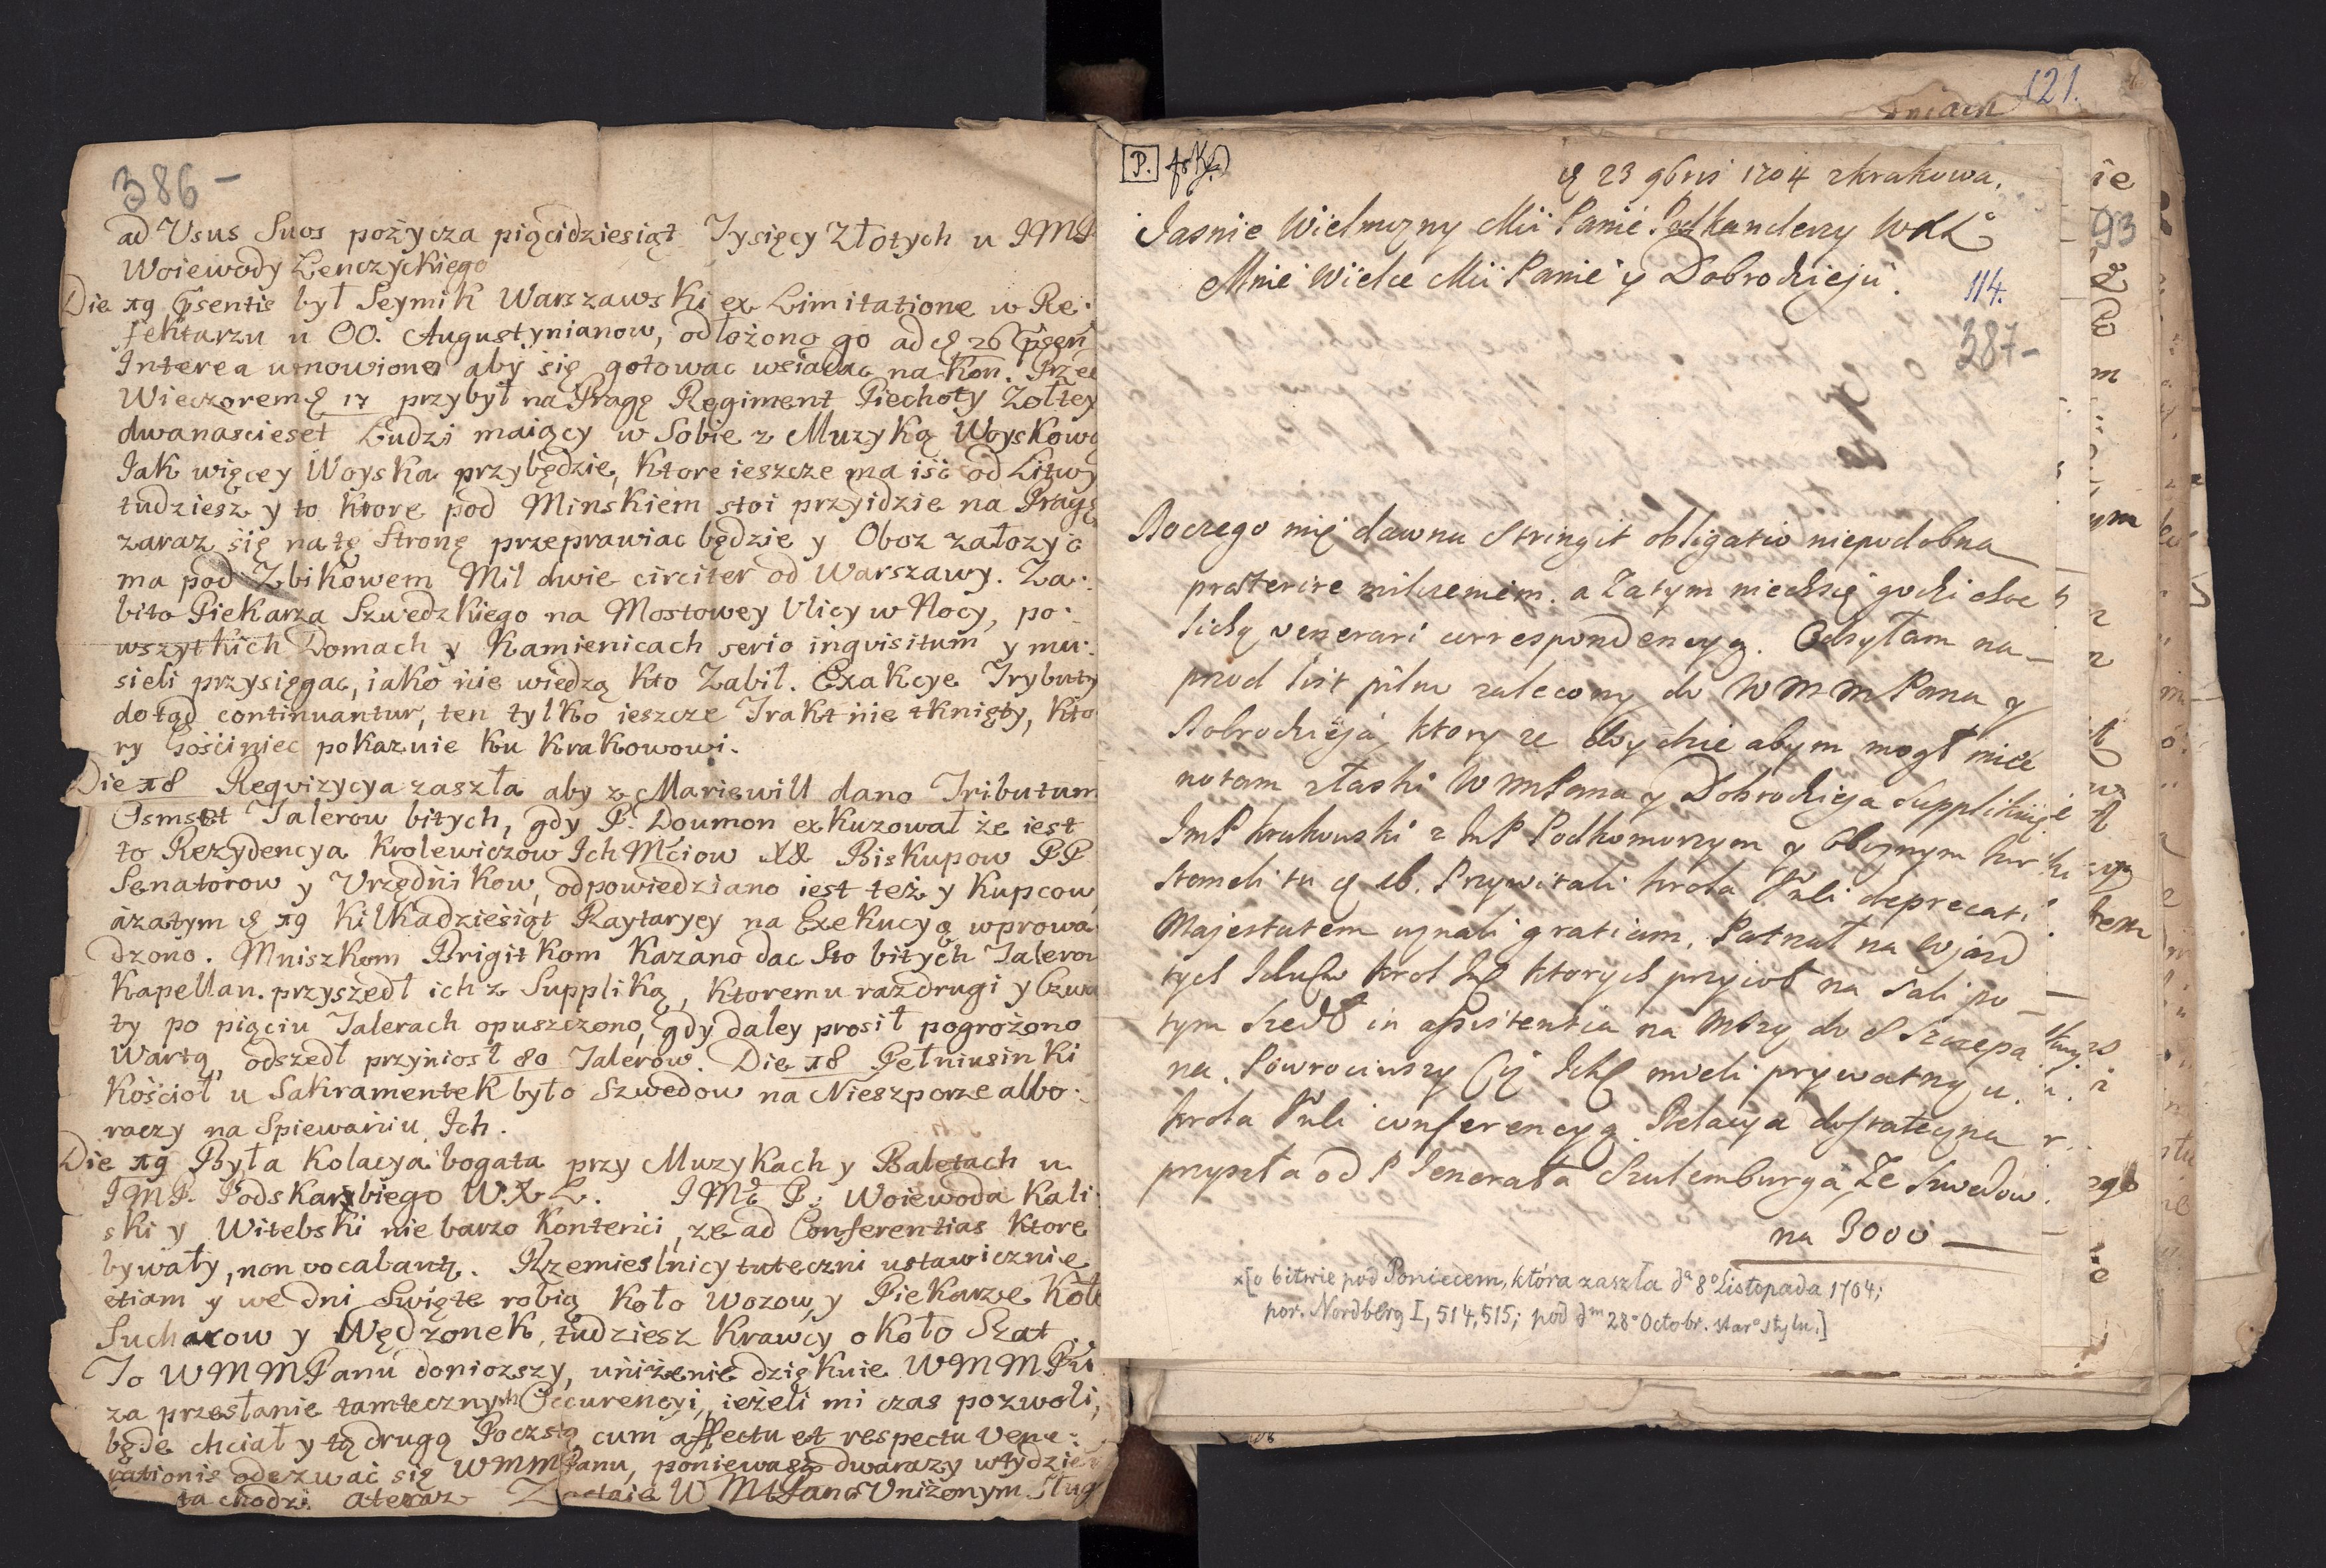 386 -
ad Usus Suos pożycza pięcidziesiąt Tysięcy Złotych u IMP
Woiewody Lenczyckiego
Die 19 psentis był Seymik Warszawski ex Limitatione w Re:
fektarzu u OO. Augustynianow, odłożono go ad d 26 psen
Interea umowiono aby się gotowac wsiadac na Kon. Przed
Wieczorem d 17 przybył na Pragę Regiment Piechoty Zołtey
dwanascieset Ludzi maiący w Sobie z Muzyką Woyskową
Jak więcey Woyska przybędzie, Ktore ieszcze ma iść od Litwy
tudziesz y to Ktore pod Minskiem stoi przyidzie na Pragę
zaraz się na tę Stronę przeprawiac będzie y Oboz załozyc
ma pod Zbikowem Mil dwie circiter od Warszawy. Za:
bito Piekarza Szwedzkiego na Mostowey Ulicy w Nocy, po:
wszytkich Domach y Kamienicach serio inqvisitum y mu:
sieli przysięgac, iako nie wiedzą Kto Zabil. Exakcye Trybuty
dotąd continuantur, ten tylko ieszcze Trakt nie tknięty, Kto
ry Gościniec pokazuie Ku Krakowowi.
Die 18 Reqvizycya zaszła aby z Mariewill dano Tributum
Osmset Talerow bitych, gdy P. Doumon exkuzował że iest
to Rezydencya Krolewiczow Ich Mciow XX Biskupow PP
Senatorow y Urzędnikow, odpowiedziano iest też y Kupcow,
azatym d 19 Kilkadziesiąt Raytaryey na Exekucyą wprowa
dzono. Mniszkom Brigitkom Kazano dac Sto bitych Talerow
Kapellan przyszedł ich z Suppliką, Ktoremu raz drugi y Czwa
ty po pięciu Talerach opuszczono, gdy daley prosił pogrożono
Wartą, odszedł przyniosł 80 Talerow. Die 18 Pełniusinki
Kościoł u Sakramentek było Szwedow na Nieszporze albo:
raczy na Spiewaniu Ich.
Die 19 Była Kolacya bogata przy Muzykach y Baletach u
IMP. Podskarbiego W.X.L. IMć P: Woiewoda Kali
ski y Witebski nie barzo Kontenci, ze ad Conferentias Ktore
bywały, non vocabantz. Rzemieslnicy tuteczni ustawicznie
etiam y we dni Swięte robią Koło Wozow, y Piekarze Koło
Sucharow y Wędzonek, tudziesz Krawcy około Szat
To WMMPanu doniozszy, uniżenie dziękuie WMMPu
za przesłanie tamtecznych Occurencyi, ieżeli mi czas pozwoli,
będe chciał y tę drugą Pocztą cum affectu et respectu Vene:
rationis odezwać się WMMPanu, poniewasz dwarazy w tydzien
ta chodzi ateraz Zostaie WMMPana Uniżonym Sług
121.
P.
d 23 9bris 1704 zkrakowa.
Jasnie Wielmozny Mći Panie Podkanclerzy WXL
Mnie Wielce Mći Panie y Dobrodzieju.
114.
387 -
Doczego mię dawna stringit obligatio niepodobna
praeterire milczeniem. a Zatym niech się godzi
lichą venerari correspondencyą. Odsyłam na-
przod list pilno zalecony do WMMPana y
Dobrodzieja, ktory ze abym mogł miec
notam złaski WMPana y Dobrodzieja Supplikuię
ImP krakowski z ImP Podkomorzym y Oboznym kor
stomeli tu d 16. Przywitali krola Puli deprecati
Majestatem uznali gratiam. Patrzał na wjazd
tych krol ktorych przyioł na Sali po
tym szedł in assistentia na Mszy do S Szczepa
na. Powrociwszy mieli prywatną u
krola Puli conferencyą. Relacya dostateczna
przyszła od P Jenerała Szulemburga, Ze Szwedow
na 3000 —
x[o bitwie pod Poniecem, która zaszła da 8o Listopada 1704;
por. Nordberg I, 514, 515; pod dm 28o Octobr. staro stylu.]
93